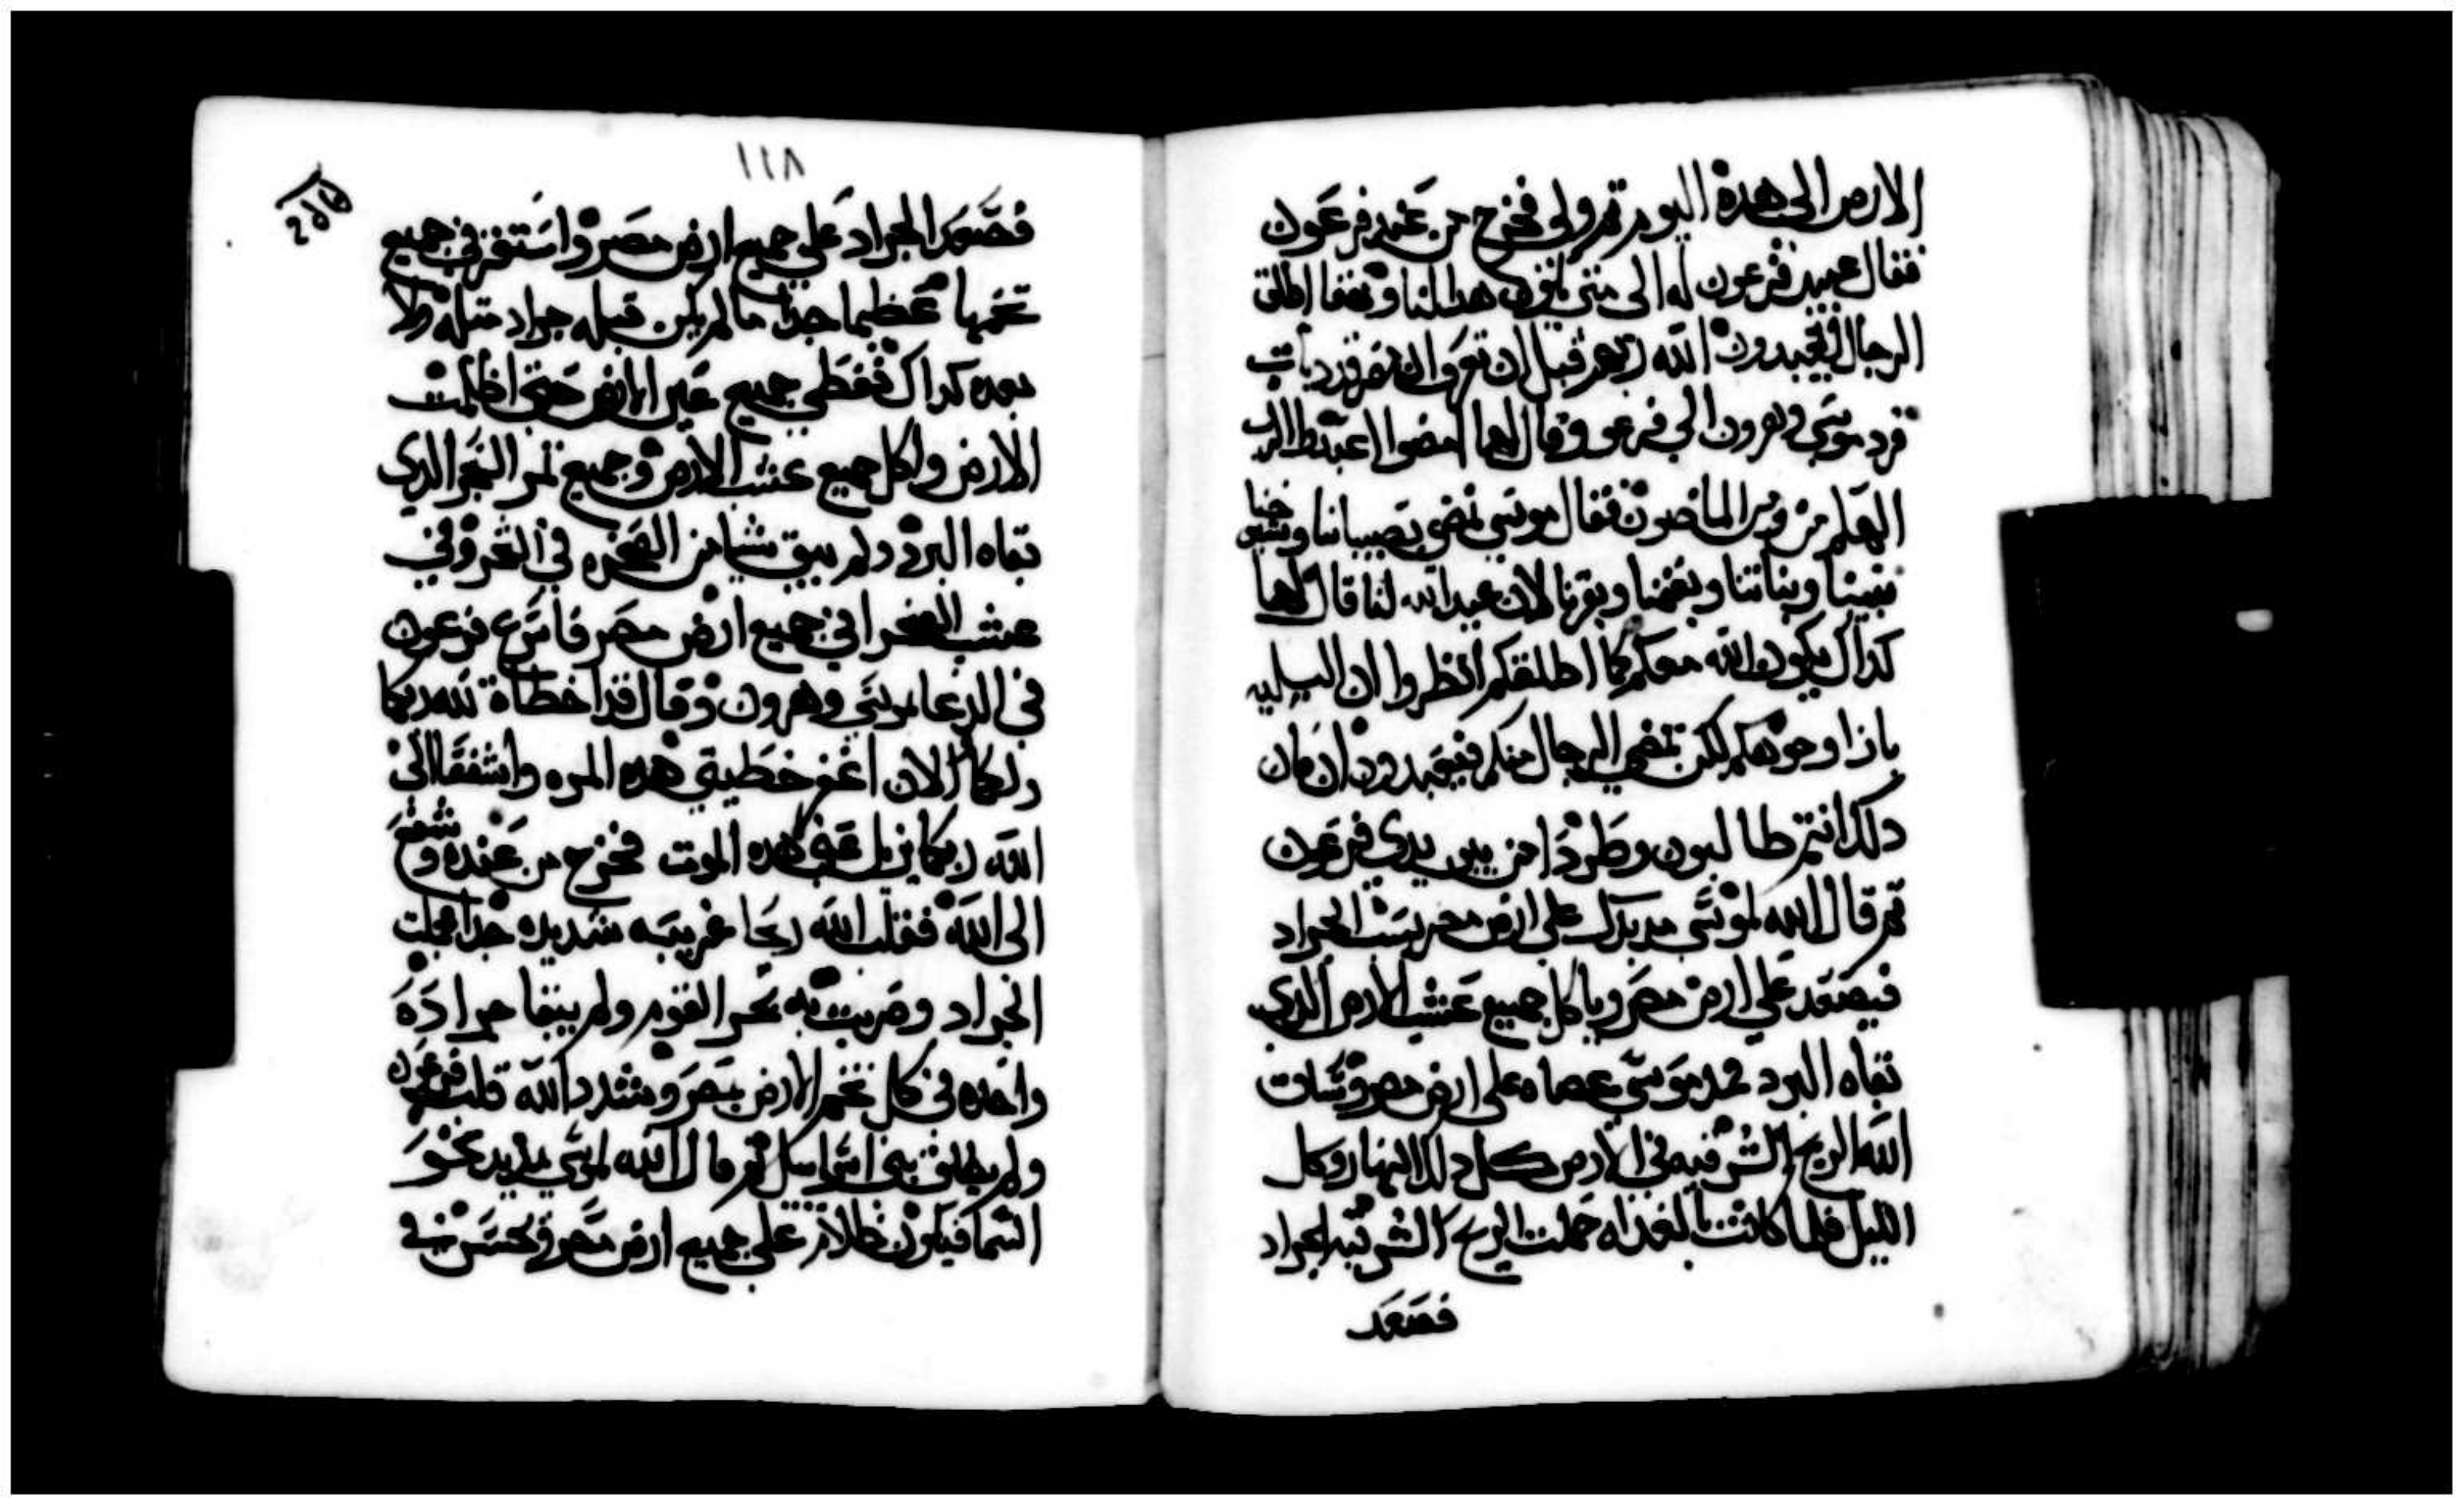 الارض الى هده اليوم تم ولى فخرج من عند فرعون
فقال عبيد فرعون له الى متى يكون هدا لنا وهقا اطلق
الرجال فيعبدون الله ربهم قبل ان تعرف ان مصر قد بات
فرد موسى وهرون الي فرعون وقال لهما امضوا اعبدوا الله
الهكم من ومن الماضون فقال موسى نمضي بصبياننا وشيوخنا
ببنينا وبناتنا وبغنمنا وبقرنا لان عيد الله لنا قال لهما
كداك يكون الله معكم كما اطلقكم انظروا ان البليه
بازا وجوهكم لكن تمضي الرجال منكم فيعبدون ان كان
دلك انتم طالبون وطردا من بين يدي فرعون
تم قال الله لموسى مد يدك على ارض مصر بسبب الجراد
فيصعد علي ارض مصر وياكل جميع عشب الارض الدي
بقاه البرد فمد موسى عصاه على ارض مصر وساق
الله الريح الشرقيه في الارض كل دلك النهار وكل
الليل فلما كانت بالغداه حملت الريح الشرقيه الجراد
فصعد
١١٨
فصعد الجراد علي جميع ارض مصر واستقر في جميع
تخمها عظيما جدا ما لم يكن قبله جراد متله ولا
بعده كداك فغطي جميع عين الارض حتى اظلمت
الارض واكل جميع عشب الارض وجميع تمر الشجر الدي
بقاه البرد ولم يبق شيا من الخضره في الشجر وفي
عشب الصحرا في جميع ارض مصر فاسرع فرعون
في الدعا لموسى وهرون وقال قد اخطاة لله ربكما
ولكما الان اغفر خطيتي هده المره واشفعا الى
الله ربكما يزيل عني هده الموت فخرج من عنده وشفع
الى الله فقلب الله ريحا غربيه شديده جدا فحملت
الجراد وضربت به بحر القلزم ولم يبقا جرادة
واحده في كل تخم الارض بمصر وشدد الله قلب فرعون
ولم يطلق بني اسراييل تم قال الله لموسي مد يدك نحو
السما فيكون ظلام علي جميع ارض مصر